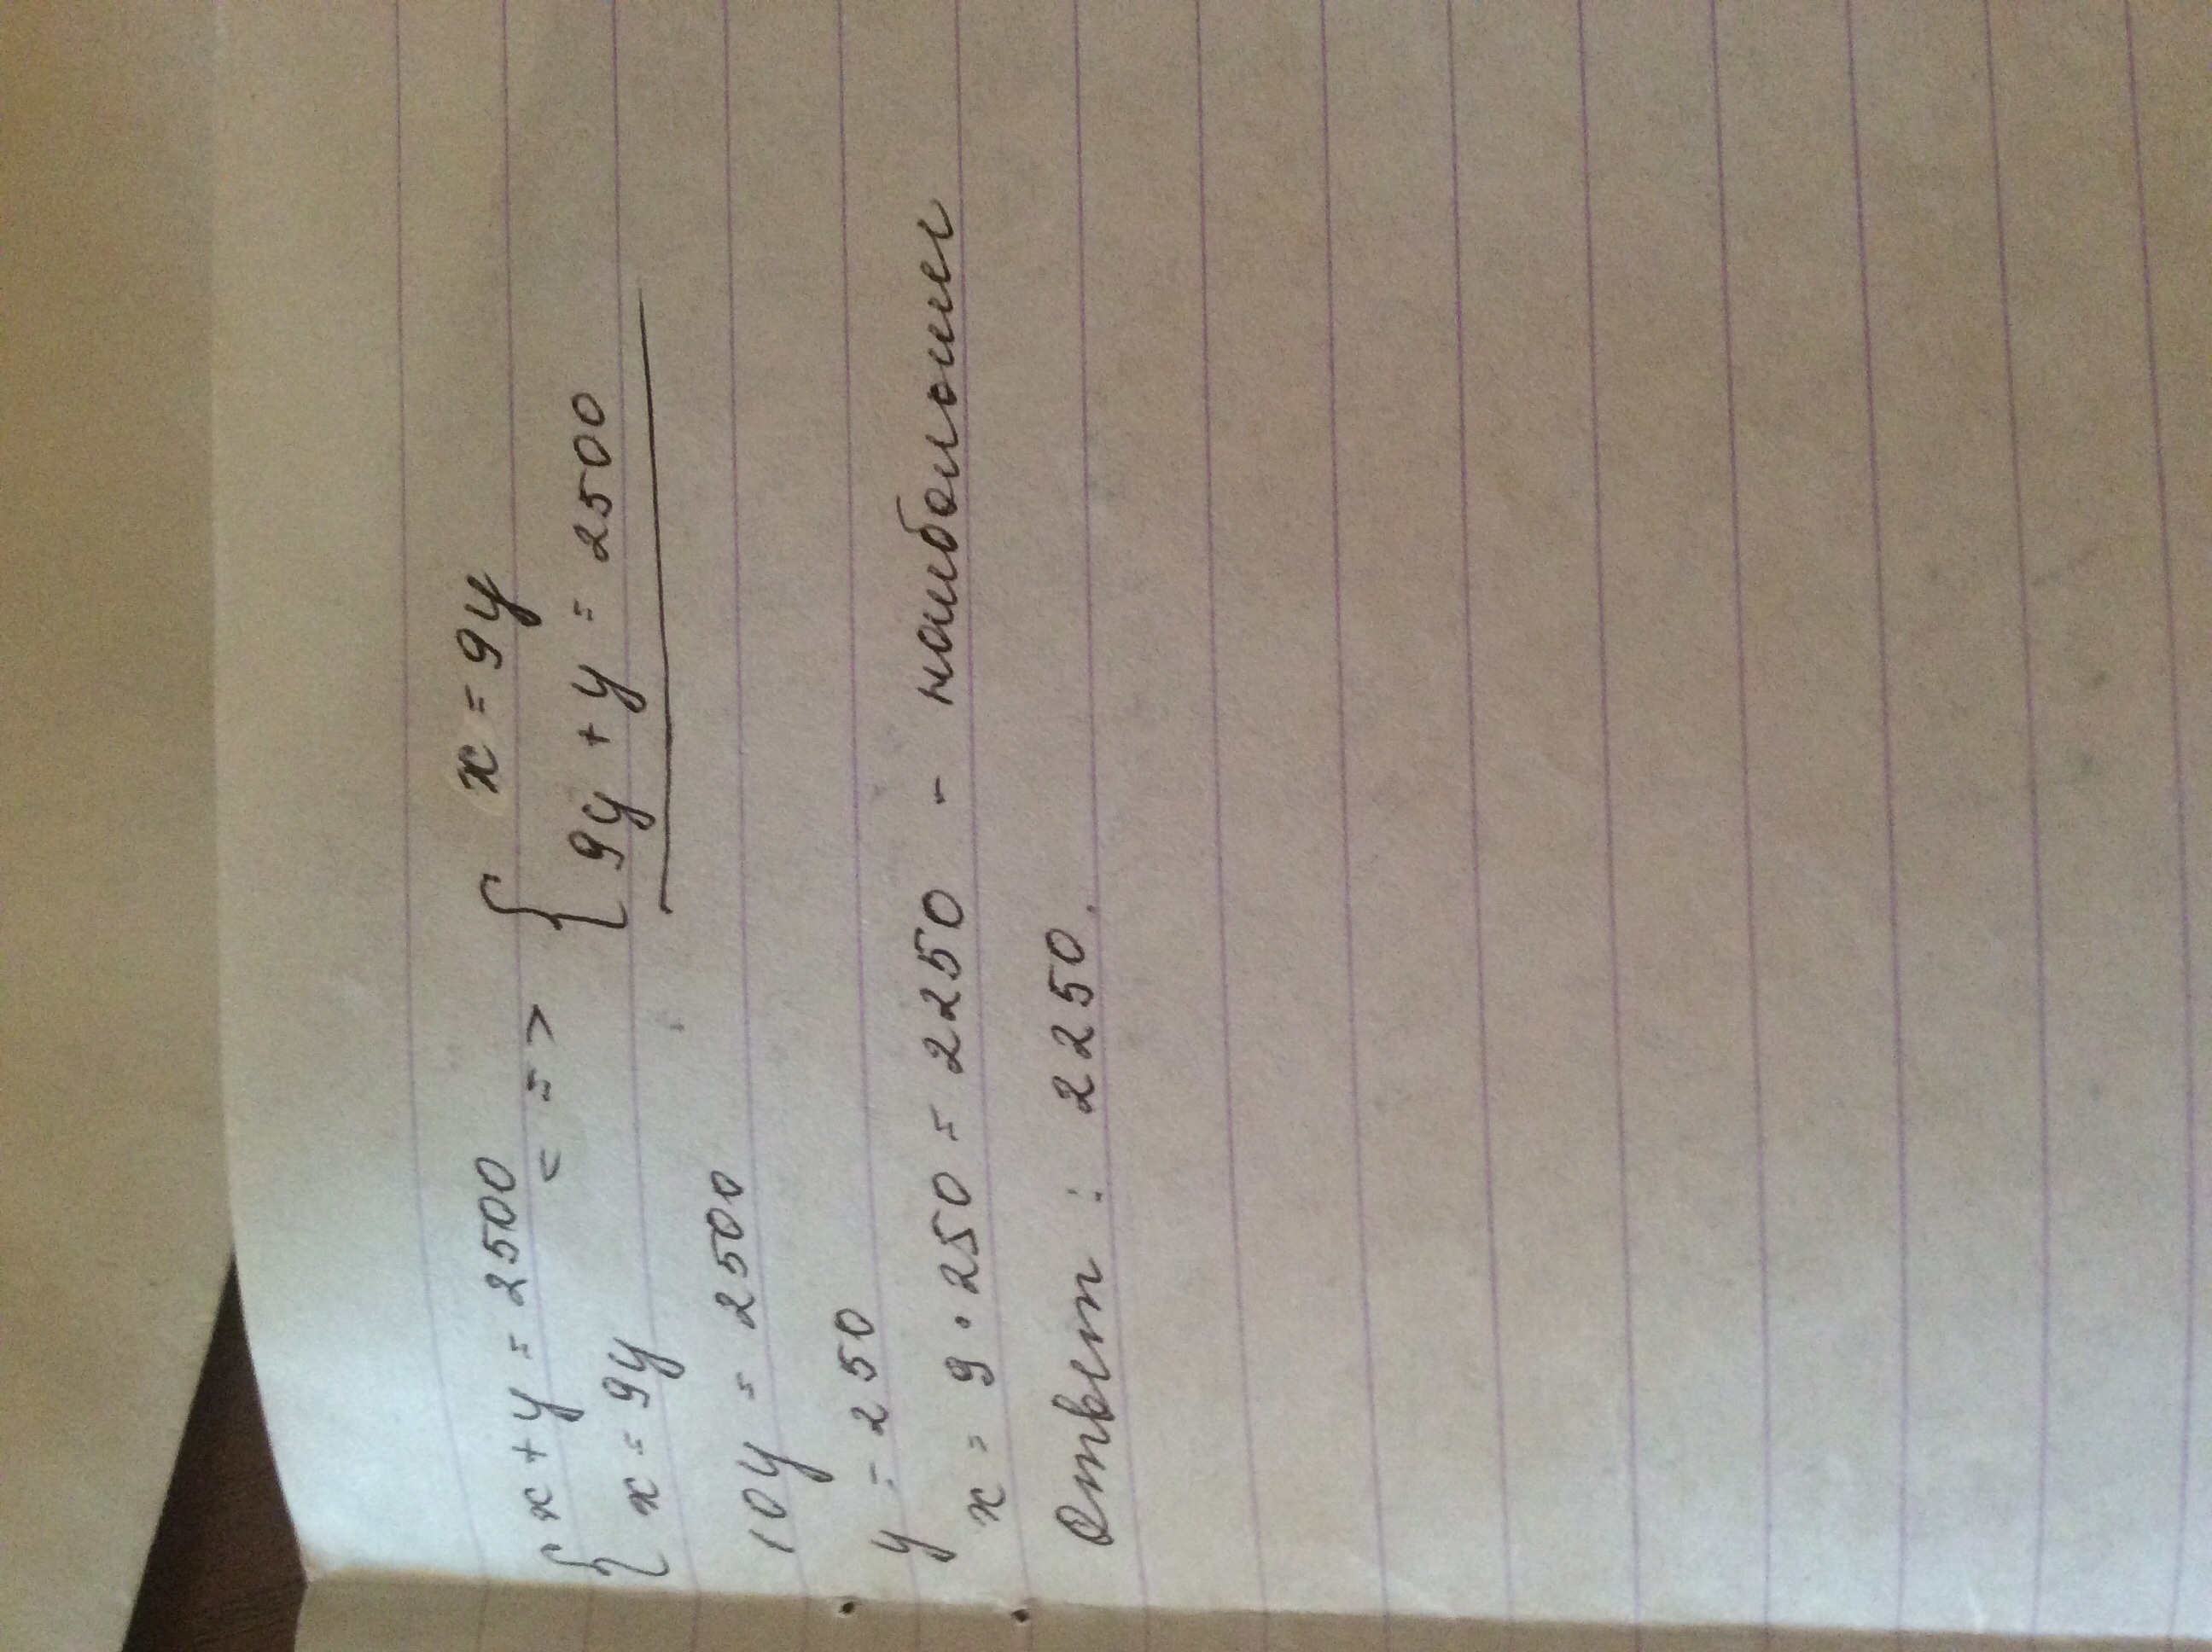 { x + y = 2500 <=> { x = 9y
x = 9y 9y + y = 2500
10y = 2500
y = 250
x = 9 · 250 = 2250 - наибольшее
Ответ : 2250.